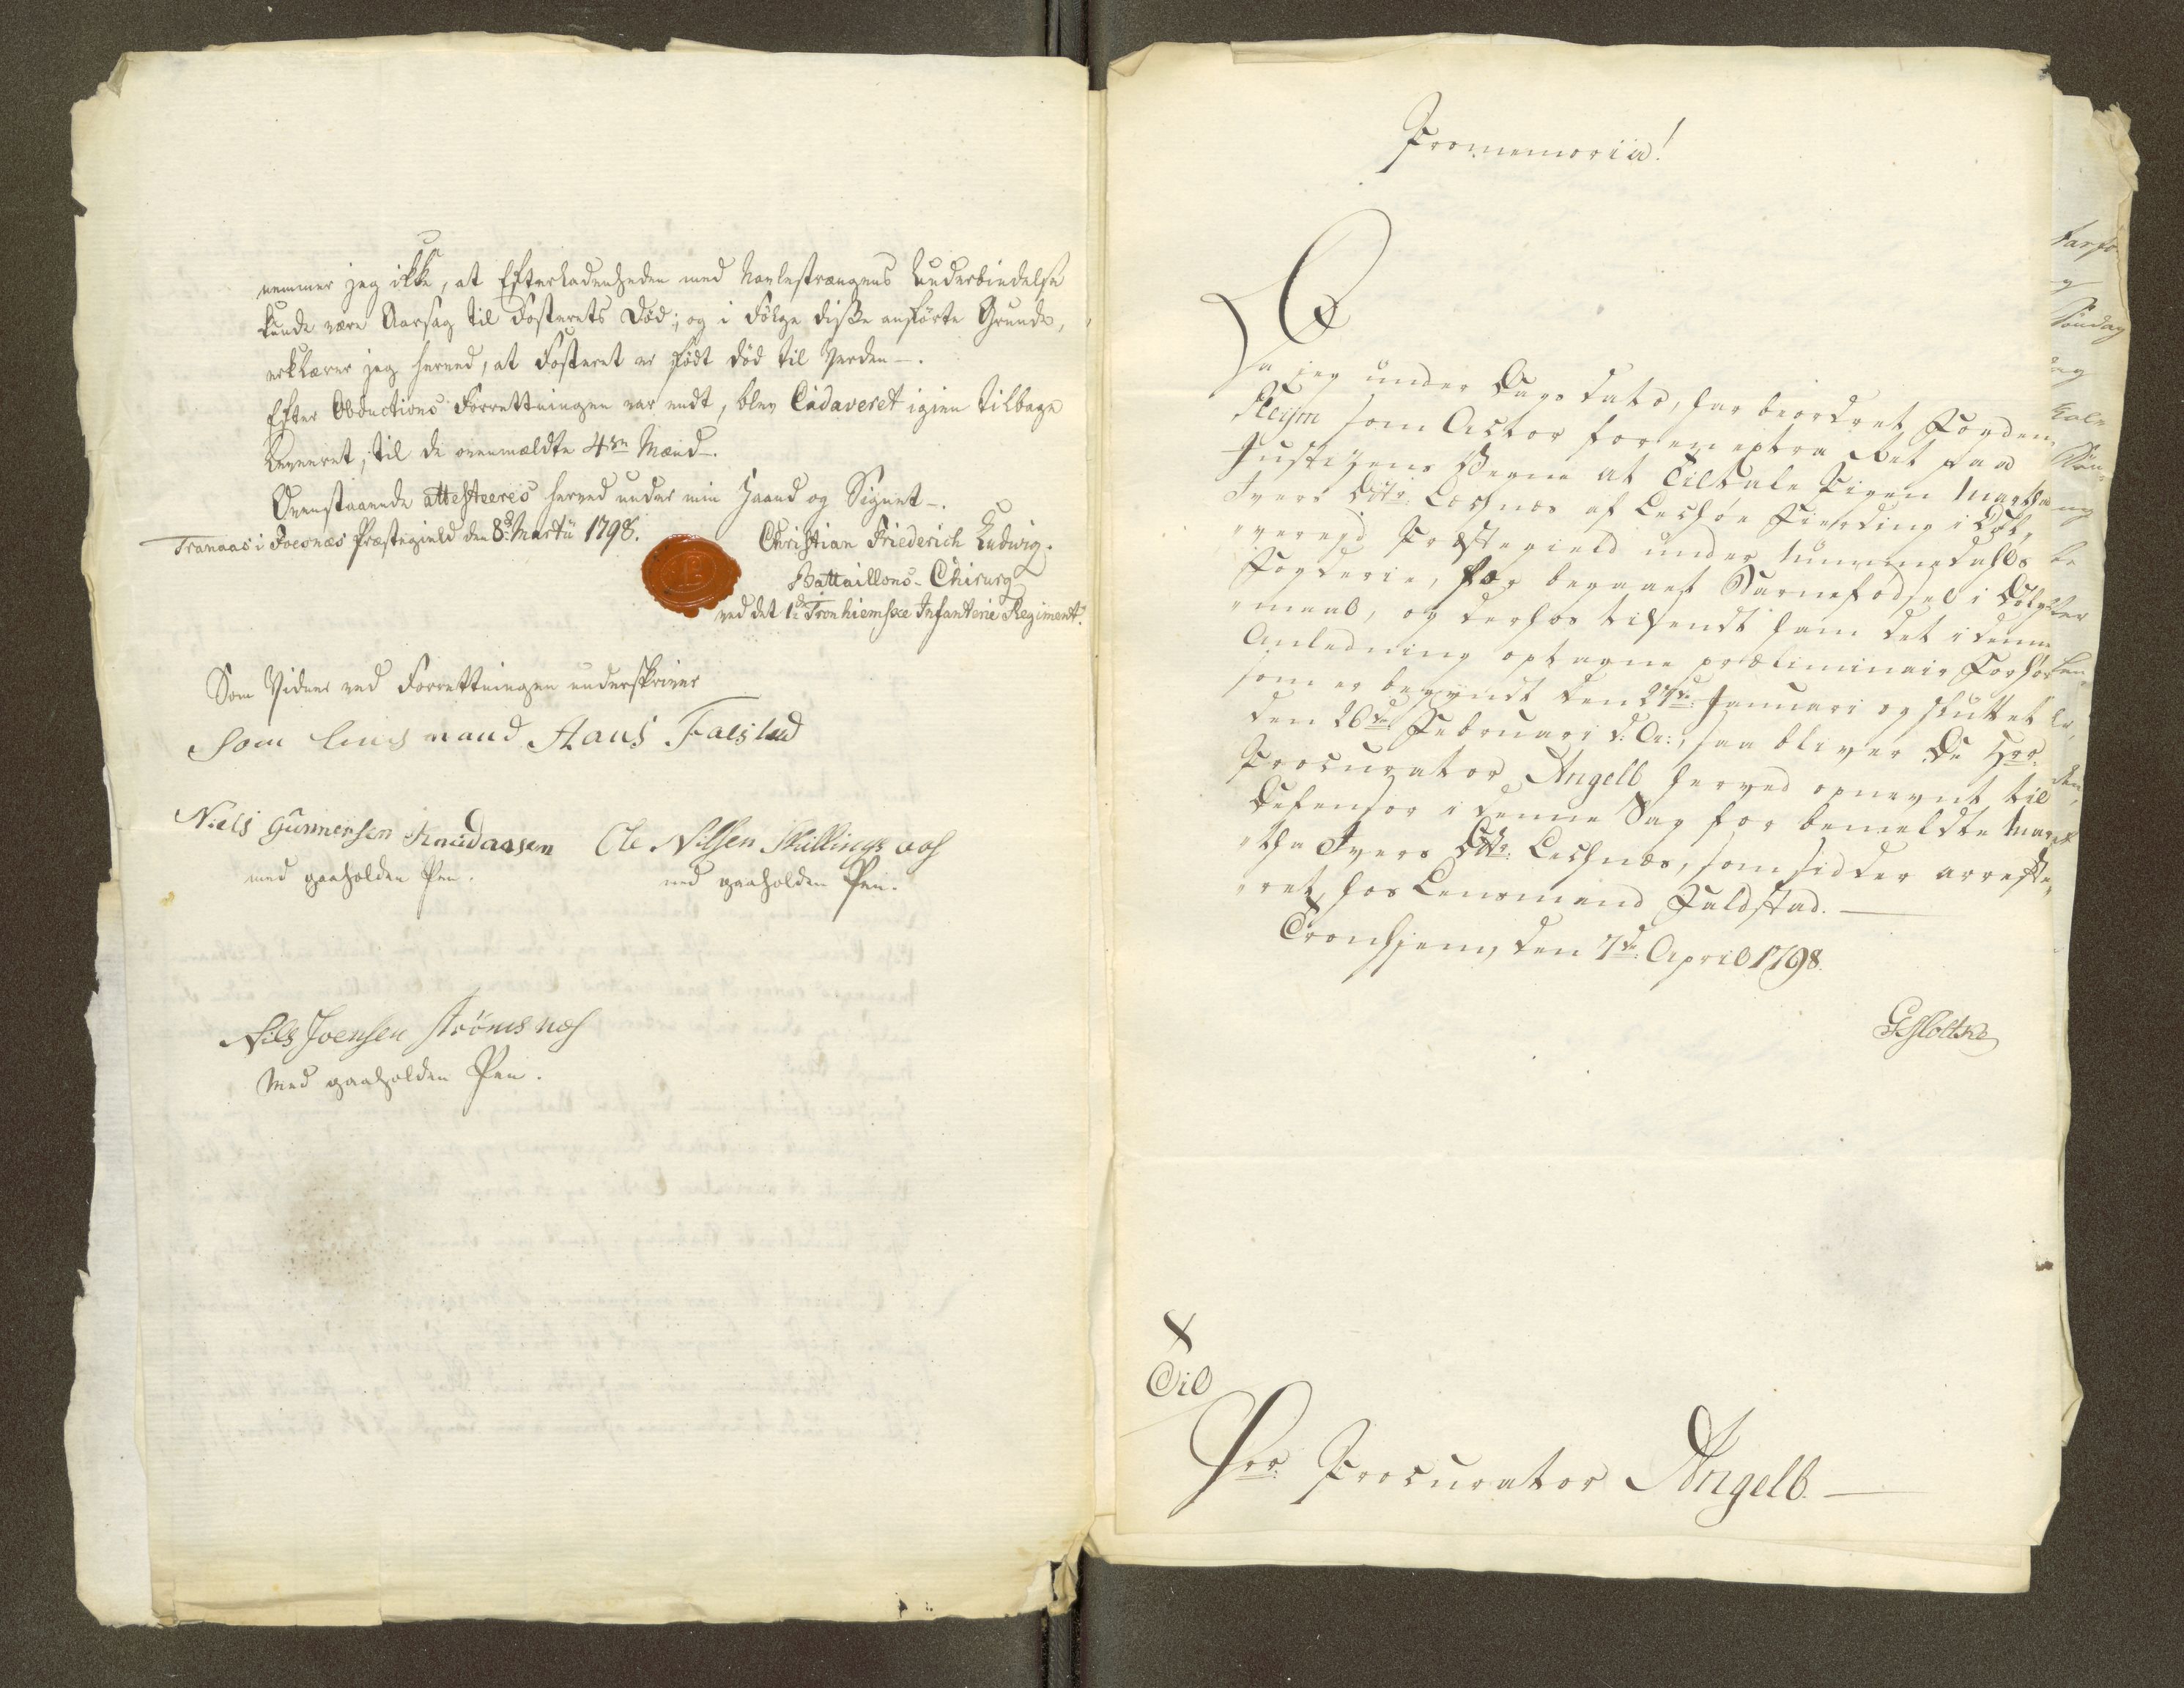 nemmer jeg ikke, at Efterladenheden med Navlestrængens Underbindelse
kunde være Aarsag til Fosterets Død; og i Følge disse anførte Grunde,
erklærer jeg herved, at Fosteret er født død til Verden-.
Efter Obductions Forrettningen var endt, blev Cadaveret igien tilbage
Leveret, til de ovenmældte 4re Mænd-.
Ovenstaaende attesteeres herved under min Haand og Signet-.
Tranaas i Foesnæs Præstegield den 8de Martii 1798.
Christian Friederich Ludwig.
Battaillons-Chirurg
ved det 1te Tronhiemske Infanterie Regiment.
Som Vidner ved Forrettningen underskriver
Som Lensmand Hans Falstad
Niels Gunnersen Knudaasen Ole Nilssen Skillingsaas
med paaholden Pen. med paaholden Pen.
Nils Joensen Strömsnæs
Med paaholden Pen.
Promemoria!
Da jeg under Dags dato, har beordret Fogden
som Actor for en extra Ret paa
Justizens Vegne at Tiltale Pigen Marthe
Ivers Dttr: Leschnæs af Leschøe Fierding i Ofv-
"veregd Præstegield under Nummedahls
Fogderie, for begaaet Barnefødsel i Dølgs-
"maal, og derhos tilsendt ham det i denne
Anledning optagne præliminair Forhør
som er begyndt den 27de Januari og sluttet
den 26de Februari d: A:, saa bliver De Hrr:
Procurator Angell herved opnevnt til
Defensor i denne Sag for bemeldte Mar-
"tha Ivers Dttr: Leschnæs, som sidder arreste-
"ret hos Lensmand Faldstad.
Tronhjem, den 7de April 1798.
GFMoltke
Til
Hrr: Procurator Angell.